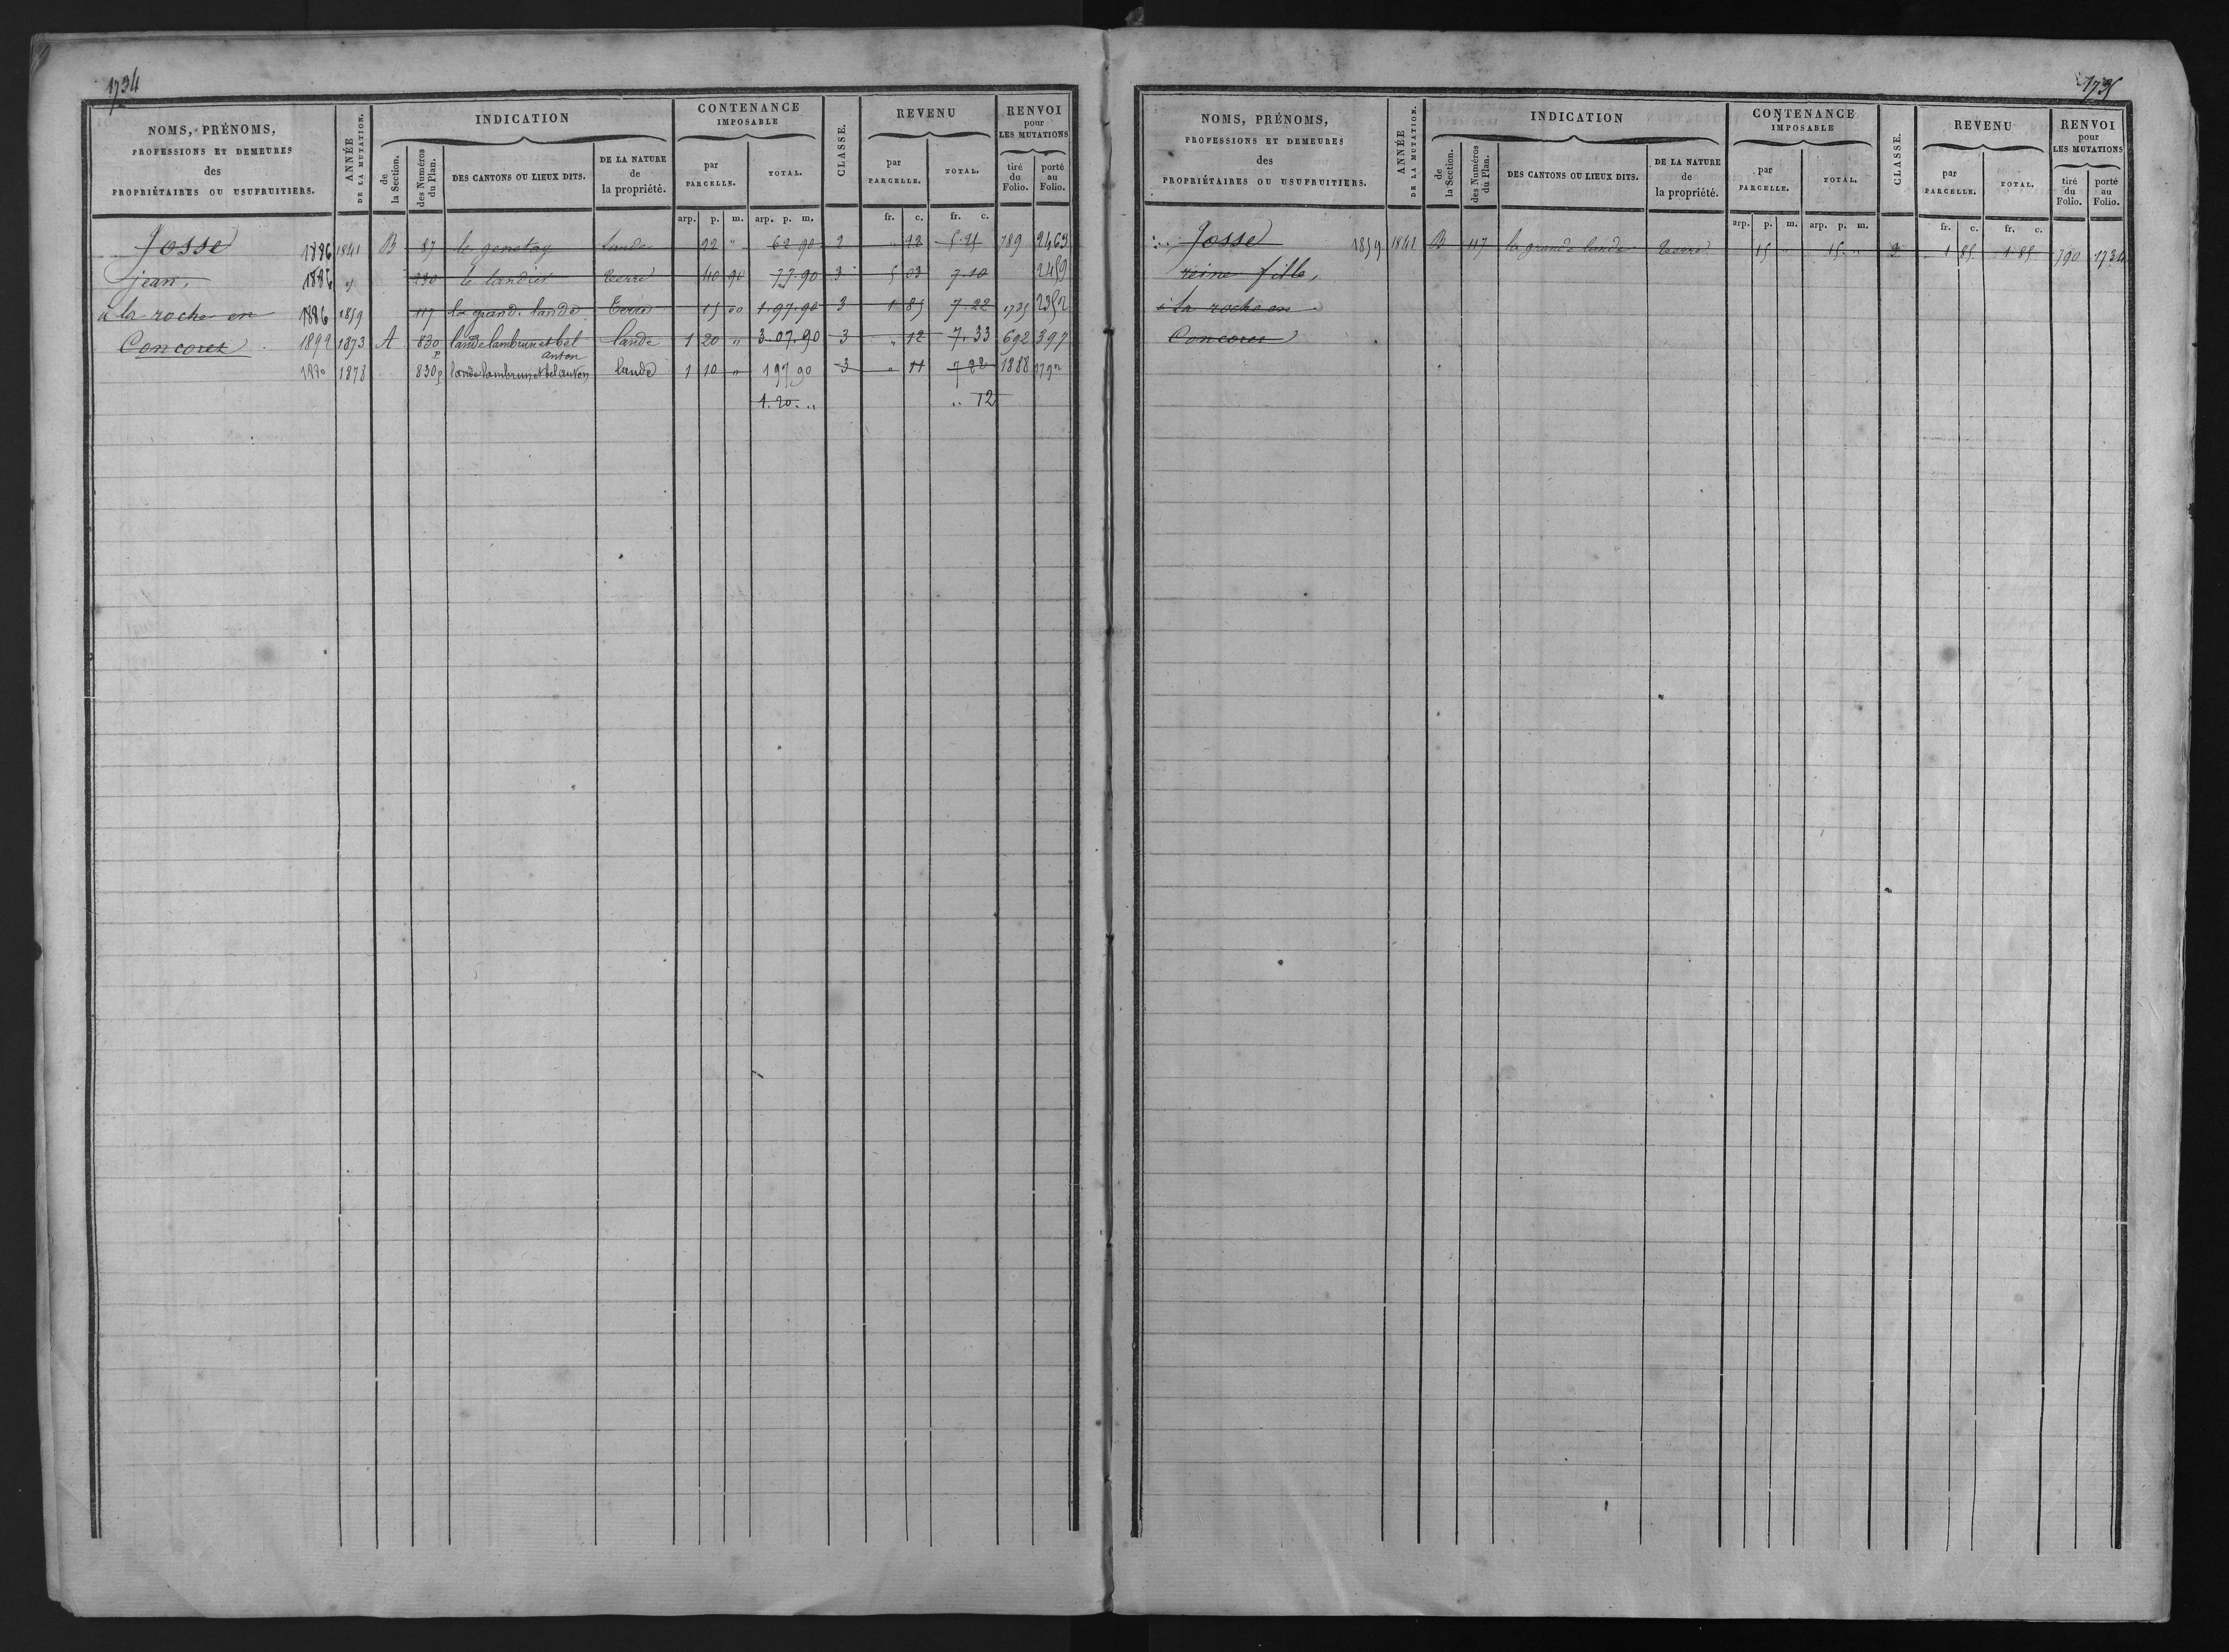 1734
NOMS, PRÉNOMS,
PROFESSIONS ET DEMEURES
des
PROPRIÉTAIRES OU USUFRUITIERS.
ANNÉE
DE LA MUTATION.
INDICATION
de
la Section.
des Numéros
du Plan.
DES CANTONS OU LIEUX DITS.
DE LA NATURE
de
la propriété.
CONTENANCE
IMPOSABLE
par
PARCELLE.
TOTAL.
CLASSE.
REVENU
par
PARCELLE.
TOTAL.
RENVOI
pour
LES MUTATIONS
tiré
du
Folio.
porté
au
Folio.
arp. p. m. arp. p. m. fr. c. fr. c.
Josse 1886 1841 B 87 le genetay Lande 22 " 62 90 2 " 22 789 2463
jean, 1886 " 230 le landier terre 40 90 77.90 3 5 03 7.10 2459
à la roche en 1886 1859 117 la grande lande terre 15 00 1.97.90 3 1 85 7.22 1735 2352
Concoret 1892 1873 A 830 p lande lambrun et bel lande 1 20 " 3.07.90 3 " 12 7.33 692 397
anton
1880 1878 830 p lande lambrun et bel anton lande 1 10 " 197 90 3 " 11 7 22 1888 1792
1.20. " " 12
1735
NOMS, PRÉNOMS,
PROFESSIONS ET DEMEURES
des
PROPRIÉTAIRES OU USUFRUITIERS.
ANNÉE
DE LA MUTATION.
INDICATION
de
la Section.
des Numéros
du Plan.
DES CANTONS OU LIEUX DITS.
DE LA NATURE
de
la propriété.
CONTENANCE
IMPOSABLE
par
PARCELLE.
TOTAL.
CLASSE.
REVENU
par
PARCELLE.
TOTAL.
RENVOI
pour
LES MUTATIONS
tiré
du
Folio.
porté
au
Folio.
arp. p. m. arp. p. m. fr. c. fr. c.
Josse 1859 1841 B 117 la grande lande terre 15 " 15. " 1 85 1.85 790 1734
reine fille,
à la roche en
Concoret